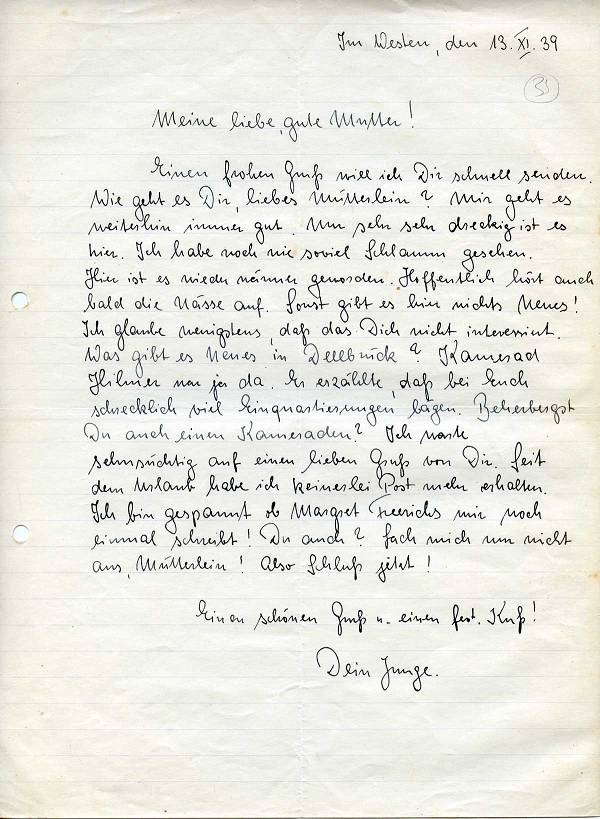 Im Westen, den 13. XI. 39
31
Meine liebe, gute Mutter!
Einen frohen Gruß will ich Dir schnell senden.
Wie geht es Dir, liebes Mütterlein? Mir geht es
weiterhin immer gut. Nur sehr sehr dreckig ist es
hier. Ich habe noch nie soviel Schlamm gesehen.
Hier ist es wieder wärmer geworden. Hoffentlich hört auch
bald die Nässe auf. Sonst gibt es hier nichts Neues!
Ich glaube wenigstens, daß das Dich nicht interessiert.
Was gibt es Neues in Dellbrück? Kamerad
Hilmer war ja da. Er erzählte, daß bei Euch
schrecklich viel Einquartierungen lägen. Beherbergst
Du auch einen Kameraden? Ich warte
sehnsüchtig auf einen lieben Gruß von Dir. Seit
dem Urlaub habe ich keinerlei Post mehr erhalten.
Ich bin gespannt ob Margret Freerichs mir noch
einmal schreibt! Du auch? Lach mich nur nicht
aus, Mütterlein! Also Schluß jetzt!
Einen schönen Gruß u. einen fest. Kuß!
Dein Junge.